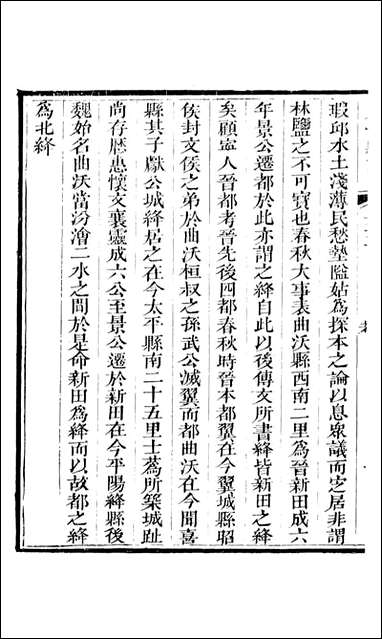 瑕邱水土淺薄民愁墊隘姑為探本之論以息眾議而定居非謂
林鹽之不可寶也春秋大事表曲沃縣西南二里為晉新田成六
年景公遷都於此亦謂之絳自此以後傳文所書絳皆新田之絳
矣顧寧人晉都考晉先後四都春秋時晉本都翼在今翼城縣昭
侯封文侯之弟於曲沃桓叔之孫武公滅翼而都曲沃在今聞喜
縣其子獻公城絳居之在今太平縣南二十五里士蒍所築城趾
尚存歷惠懷文襄靈成六公至景公遷於新田在今平陽絳縣後
魏始名曲沃當汾澮二水之間於是命新田為絳而以故都之絳
為北絳